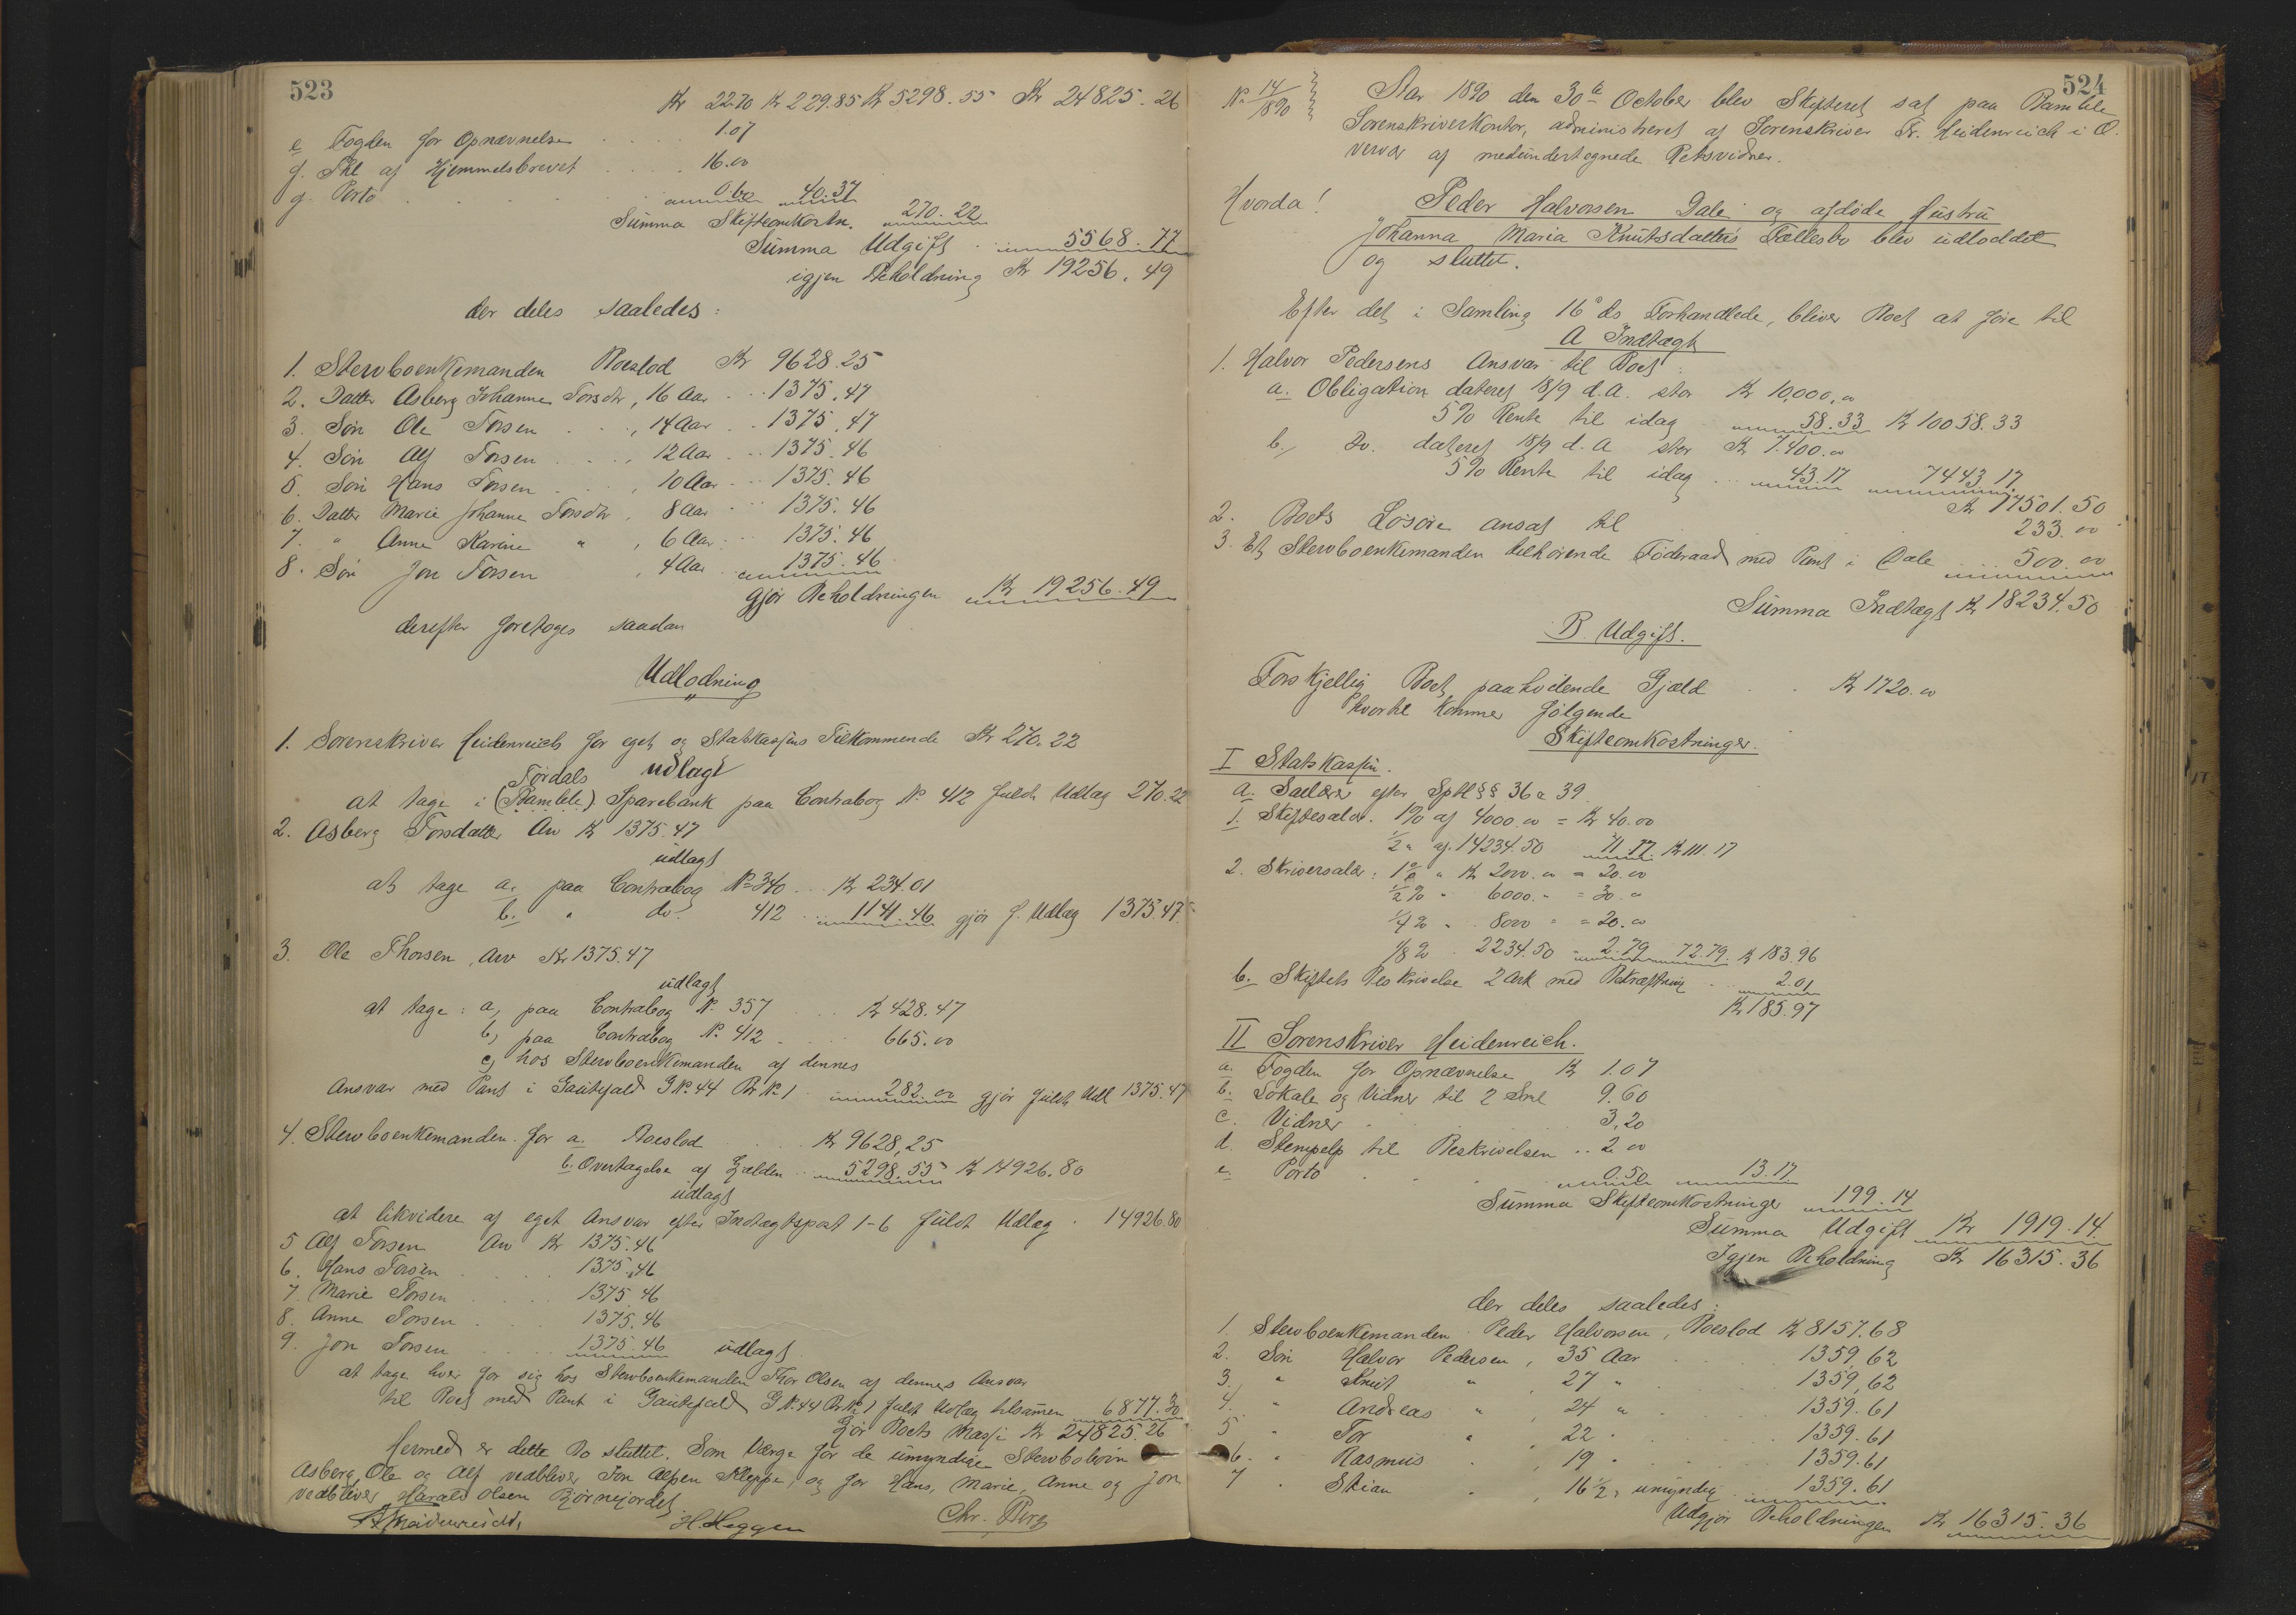 523
Kr 22.70 Kr 229.85 Kr 5298.55 Kr 24825.26
e Fogden for Opnævnelse . . . . 1.07
f. Skl af Hjemmelsbrevet . . . . 16.00
g. Porto . . . . 0.60 40.37
Summa Skifteomkostn. 270.22
Summa Udgift . . 5568.77
igjen Beholdning Kr 19256.49
der deles saaledes:
1. Stervboenkemanden Boeslod Kr 9628.25
2. Datter Asberg Johanne Torsdtr, 16 Aar . . . 1375.47
3. Søn Ole Torsen . . , 14 Aar . . 1375.47
4. Søn Alf Torsen . . . , 12 Aar . . . 1375.46
5. Søn Hans Torsen . . . , 10 Aar . . . 1375.46
6. Datter Marie Johanne Torsdtr , 8 Aar . . . 1375.46
7. " Anne Karine " , 6 Aar . . . 1375.46
8. Søn Jon Torsen , 4 Aar . . 1375.46
gjør Beholdningen Kr 19256.49
derefter foretoges saadan
Udlodning
1. Sorenskriver Heidenreich for eget og Statskassens Tilkommende Kr 270.22
udlagt
Tørdals
at tage i (Bamble) Sparebank paa Contrabog No 412 fuldt Udlæg 270.22
2. Asberg Torsdatter Arv Kr 1375.47
udlagt
at tage a. paa Contrabog No 340 . . . Kr 234.01
b. " do. 412 . . . 1141.46 gjør f. Udlæg 1375.47.
3. Ole Thorsen, Arv Kr 1375.47
udlagt
at tage: a, paa Contrabog No 357 . . . Kr 428.47
b, paa Contrabog No 412 . . . . 665.00
c, hos Stervboenkemanden af dennes
Ansvar med Pant i Gautefald G No 44 Br No 1 . 282.00 gjør fuldt Udl 1375.47
4. Stervboenkemanden for a. Boeslod . . . Kr 9628,25
b. Overtagelse af Gjælden . . 5298.55 Kr 14926.80
udlagt
at likvidere af eget Ansvar efter Indtægtspost 1-6 fuldt Udlæg . 14926.80
5 Alf Torsen Arv Kr 1375.46
6. Hans Torsen . . . . 1375.46
7. Marie Torsen . . . . 1375 46
8. Anne Torsen . . . 1375.46
9. Jon Torsen . . . 1375.46 udlagt
at tage hver for sig hos Stervboenkemanden Thor Olsen af dennes Ansvar
til Boet med Pant i Gautefald G No 44 Br No 1 fuldt Udlæg tilsammen 6877.30
Gjør Boets Masse Kr 24825.26
Hermed er dette Bo sluttet. Som Værge for de umyndige Stervbobørn
Asberg, Ole og Alf vedbliver Jon Alfsen Kleppe, og for Hans, Marie, Anne og Jon
vedbliver Harald Olsen Bjørnejordet.
Fr Heidenreich, H. Heggen Chr. Berg
524
No 14/1890
Aar 1890 den 30te October blev Skifteret sat paa Bamble
Sorenskriverkontor, administreret af Sorenskriver Fr. Heidenreich i O.
verv. af medundertegnede Retsvidner.
Hvorda!
Peder Halvorsen Dale og afdøde Hustru
Johanna Maria Knutsdatters Fællesbo blev udloddet
og sluttet.
Efter det i Samling 16 ds Forhandlede, bliver Boet at føre til
A Indtægt
1. Halvor Pedersens Ansvar til Boet:
a. Obligation dateret 18/9 d.A. stor Kr 10,000.00
5% Rente til idag . 58.33 Kr 10058.33
b. Do. dateret 18/9 d.A stor Kr 7.400.00
5% Rente til idag . . . 43.17 7443.17.
Kr 17501.50
2. Boets Løsøre ansat til 233.00
3. Et Stervboenkemanden tilhørende Føderaad med Pant i Dale . . . 500.00
Summa Indtægt Kr 18234.50
B. Udgift.
Forskjellig Boet paahvilende Gjæld . . Kr 1720.00
hvortil kommer følgende
Skifteomkostninger.
I Statskassen.
a. Salærer efter Sptl §§ 36 a 39.
1. Skiftesalær. 1% af 4000.00 = Kr 40.00
1/2 " af. 14234.50 71.17. Kr 111.17
2. Skriversalær: 1% " Kr 2000.00 = 20.00
1/2% " 6000. " = 30."
1/4% " 8000 " = 20.00
1/8% . 2234.50 = 2.79 72.79. Kr 183.96
b. Skiftets Beskrivelse 2 Ark med Bekræftning . . 2.01
Kr 185.97
II Sorenskriver Heidenreich.
a. Fogden for Opnævnelse Kr 1.07
b. Lokale og Vidner til 2 Saml 9.60
c. Vidner . . . 3,20
d. Stempelp til Beskrivelsen . . 2.00
e. Porto . . . 0.50 13.17.
Summa Skifteomkostninger 199.14
Summa Udgift Kr 1919.14.
Igjen Beholdning Kr 16315.36
der deles saaledes:
1. Stervboenkemanden Peder Halvorsen, Boeslod Kr 8157.68
2. Søn Halvor Pedersen, 35 Aar . . . 1359,62
3. " Knut " , 27 " . . . 1359,62
4. " Andreas " , 24 " . . . 1359.61
5 " Tor " , 22 " . . . 1359.61
6. " Rasmus " , 19 " . . . 1359.61
7 " Stian " , 16 1/2, umyndig . . . 1359.61
Udgjør Beholdningen Kr 16315.36